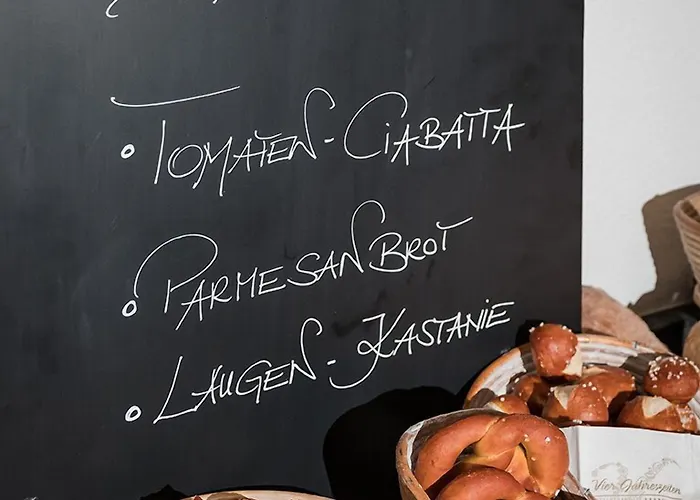 Tomaten-Ciabatta
Parmesanbrot
Laugen-Kastanie
Vier Jahreszeiten